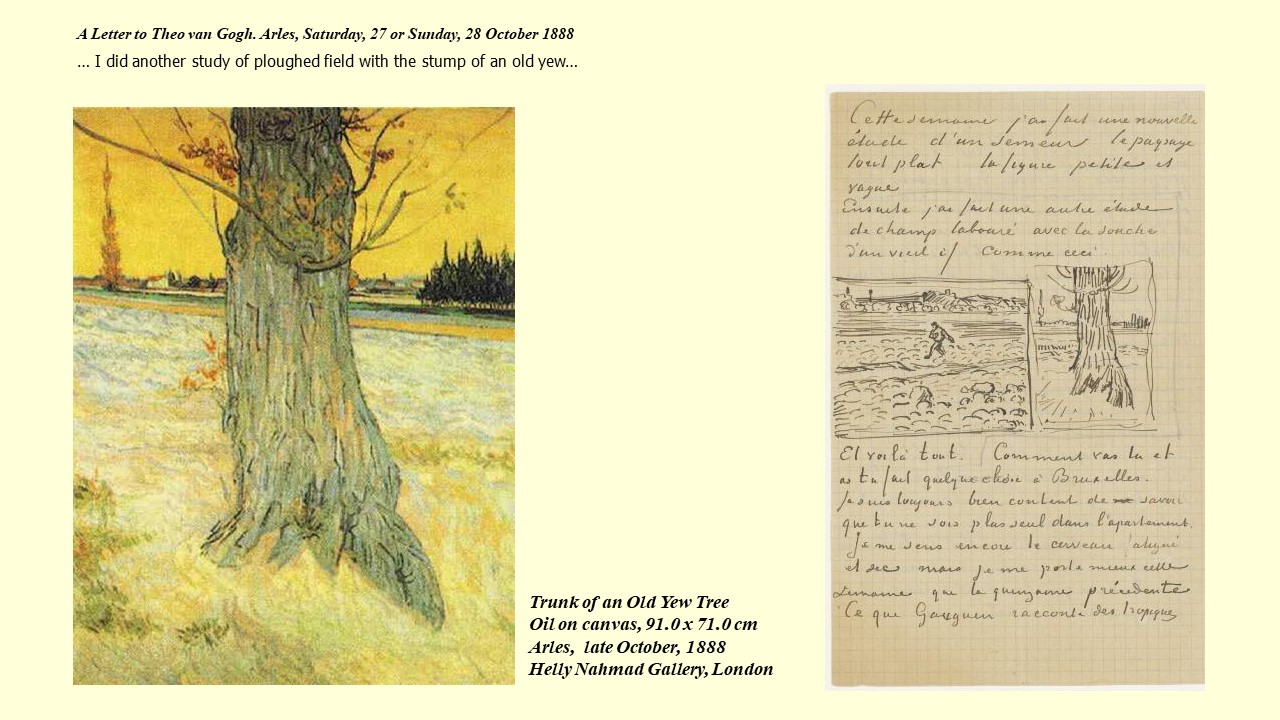 A Letter to Theo van Gogh. Arles, Saturday, 27 or Sunday, 28 October 1888
... I did another study of ploughed field with the stump of an old yew...
Trunk of an Old Yew Tree
Oil on canvas, 91.0 x 71.0 cm
Arles, late October, 1888
Helly Nahmad Gallery, London
Cette semaine j'ai fait une nouvelle
étude d'un semeur le paysage
tout plat la figure petite et
vague
Ensuite j'ai fait une autre étude
de champ labouré avec la souche
d'un vieil if Comme ceci
Et voilà tout. Comment vas tu et
as tu fait quelque chose à Bruxelles.
Je suis toujours bien content de savoir
que tu ne sois plus seul dans l'apartement.
Je me sens encore le cerveau fatigué
et sec mais je me porte mieux cette
semaine que la quinzaine précédente
Ce que Gauguin raconte des tropiques